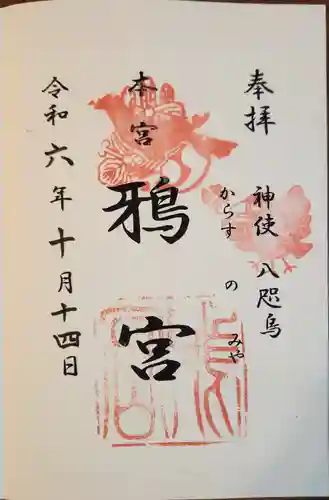 奉拝
神使八咫烏
からす の みや
本宮
鴉宮
令和六年十月十四日